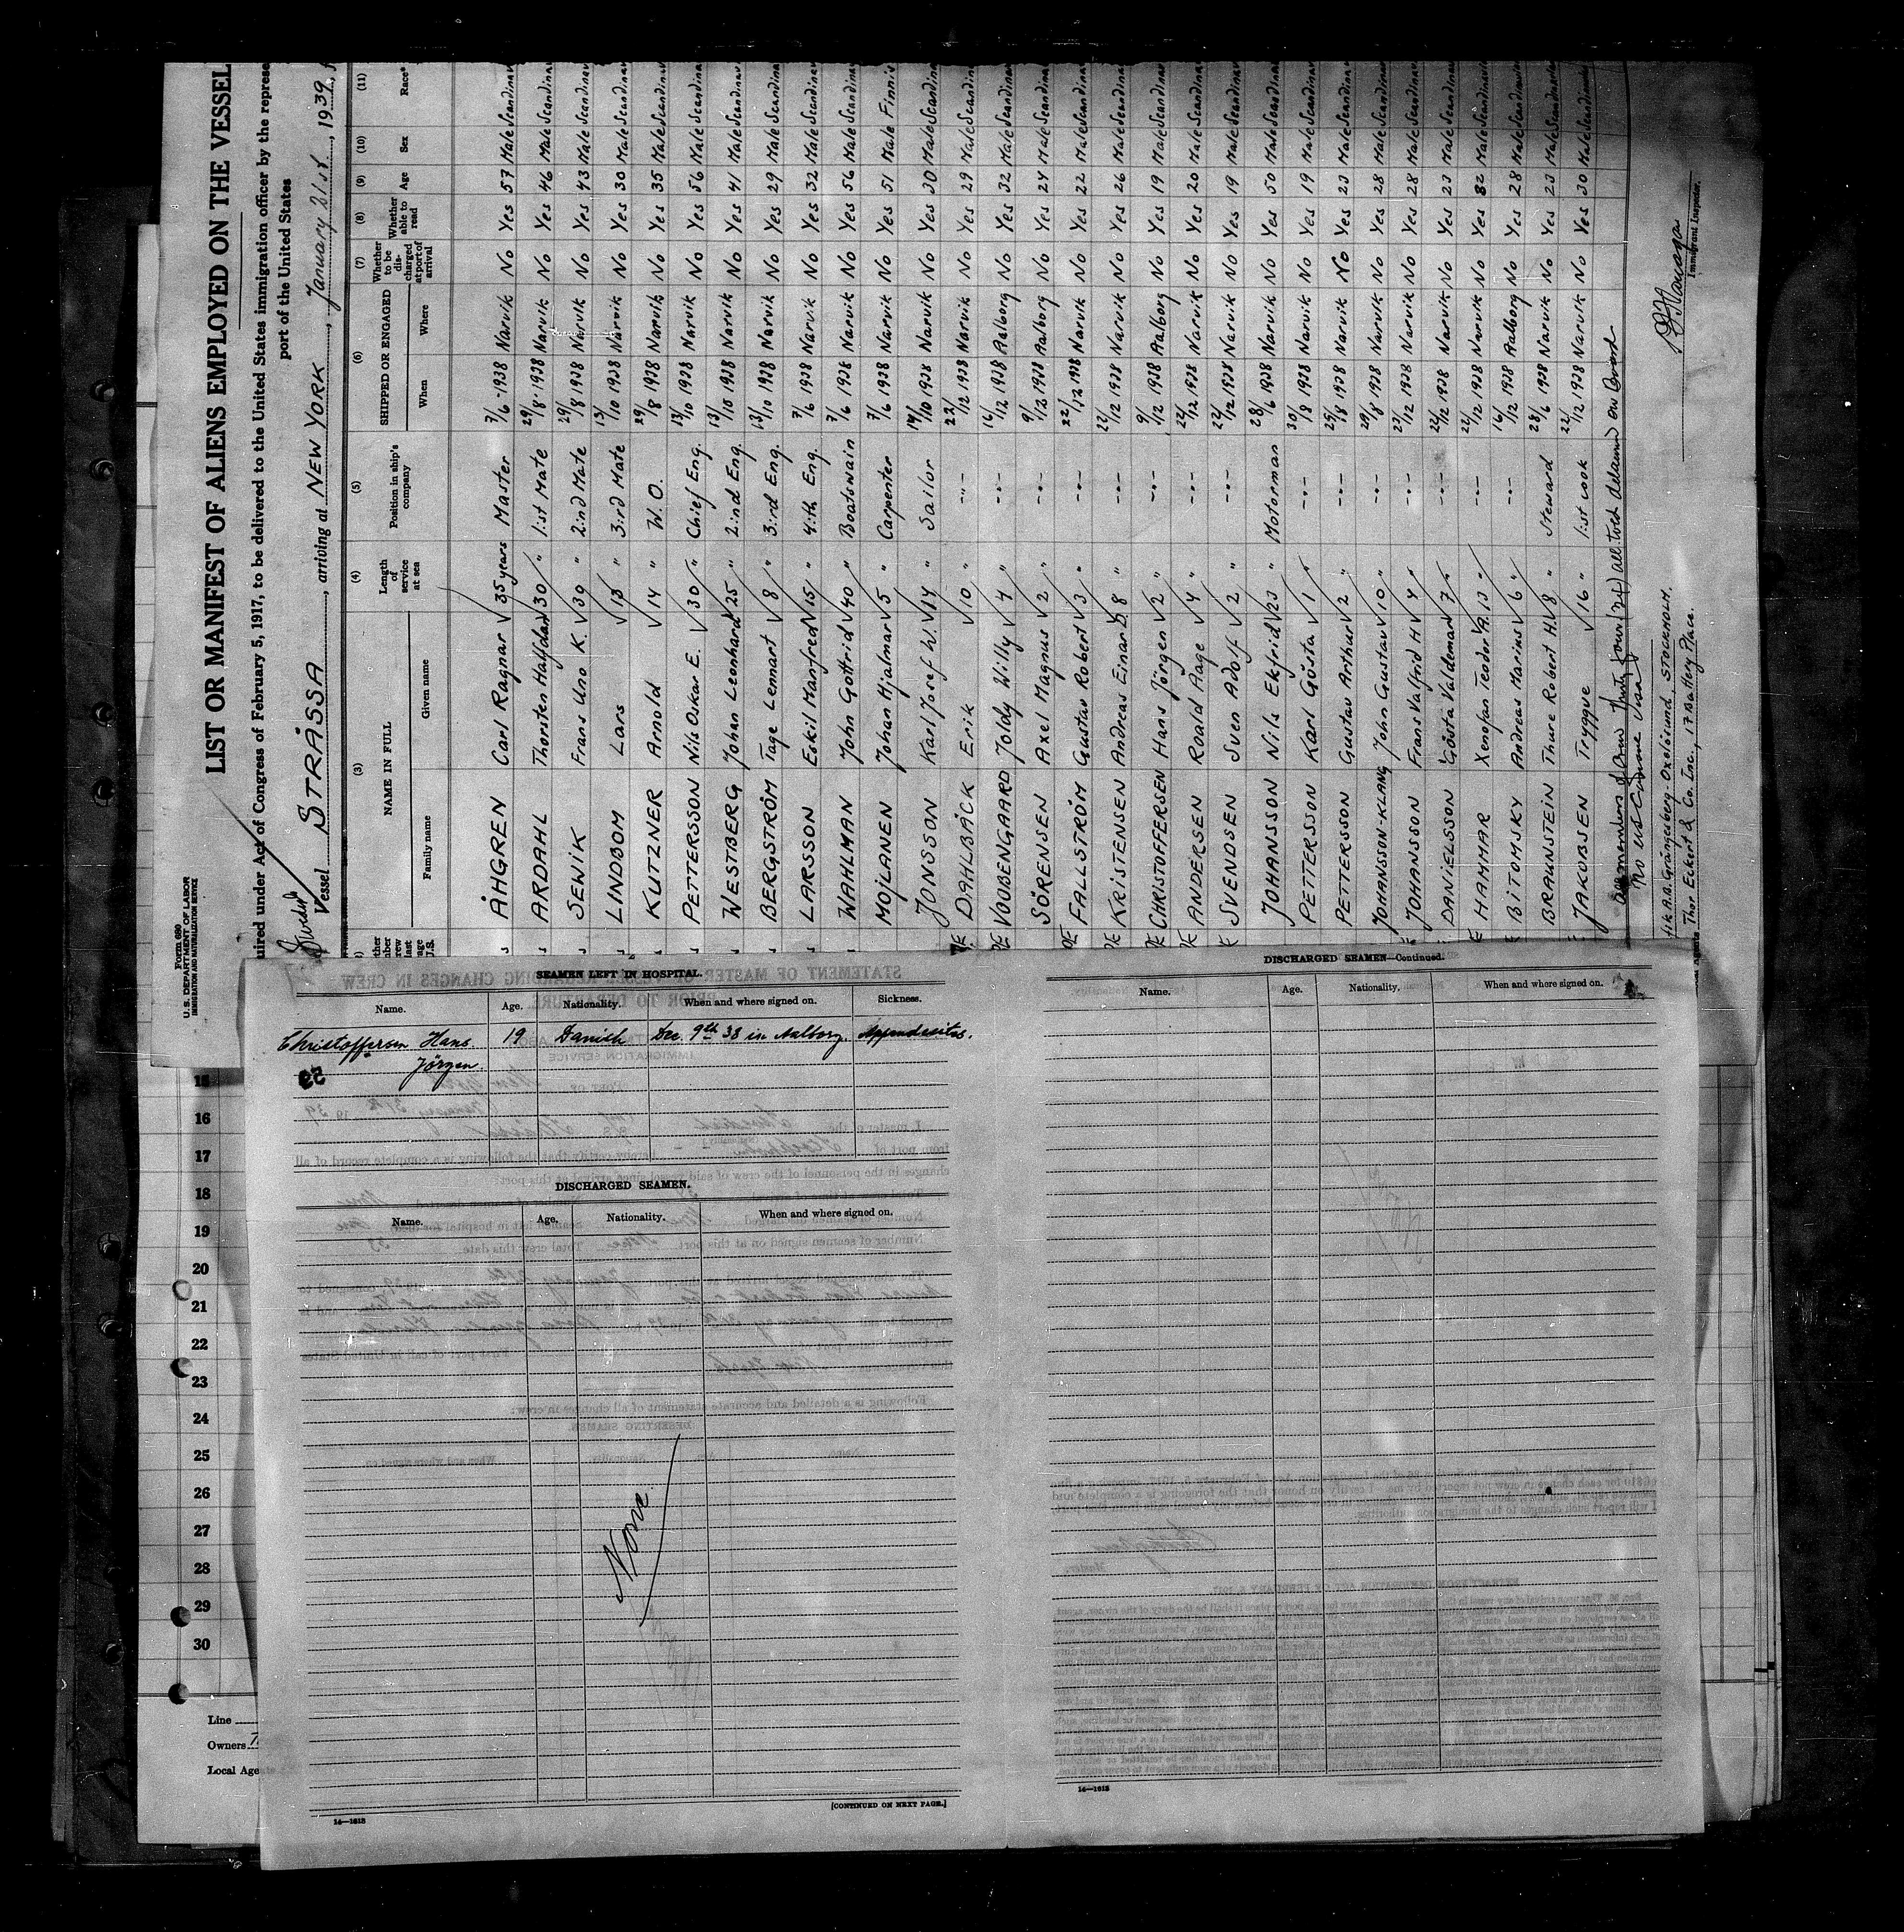 Form 680
U. S. DEPARTMENT OF LABOR
IMMIGRATION AND NATURALIZATION SERVICE
LIST OR MANIFEST OF ALIENS EMPLOYED ON THE VESSEL
uired under Act of Congress of February 5, 1917, to be delivered to the United States immigration officer by the represe
port of the United States
Vessel STRÅSSA, arriving at NEW YORK, January 21st, 1939,
(3) (4) (5) (6) (7) (8) (9) (10) (11)
NAME IN FULL Length of service at sea Position in ship's company SHIPPED OR ENGAGED Whether to be discharged at port of arrival Whether able to read Age Sex Race*
Family name Given name When Where
ÅHGREN Carl Ragnar 35 years Master 7/6 1938 Narvik No Yes 57 Male Scandinav
ARDAHL Thorsten Halfdan 30 " 1:st Mate 29/8 1938 Narvik No Yes 46 Male Scandinav
SEWIK Frans Uno K. 30 " 2:nd Mate 29/8 1938 Narvik No Yes 43 Male Scandinav
LINDBOM Lars 13 " 3:rd Mate 13/10 1938 Narvik No Yes 30 Male Scandinav
KUTZNER Arnold 14 " W. O. 29/8 1938 Narvik No Yes 35 Male Scandinav
PETTERSSON Nils Oskar E. 30 " Chief Eng. 13/10 1938 Narvik No Yes 56 Male Scandinav
WESTBERG Johan Leonhard 25 " 2:nd Eng. 13/10 1938 Narvik No Yes 41 Male Scandinav
BERGSTRÖM Tage Lennart 8 " 3:rd Eng. 13/10 1938 Narvik No Yes 29 Male Scandinav
LARSSON Eskil Manfred 15 " 4:th Eng. 7/6 1938 Narvik No Yes 32 Male Scandinav
WAHLMAN John Gottfrid 40 " Boatswain 7/6 1938 Narvik No Yes 56 Male Scandinav
MOJLANEN Johan Hjalmar 5 " Carpenter 7/6 1938 Narvik No Yes 51 Male Finnis
JONSSON Karl Josef W. 14 " Sailor 14/10 1938 Narvik No Yes 30 Male Scandina
DAHLBÄCK Erik 10 " -"- 22/12 1938 Narvik No Yes 29 Male Scandina
VODBENGAARD Joldy Willy 4 " -"- 16/12 1938 Aalborg No Yes 32 Male Scandina
SÖRENSEN Axel Magnus 2 " -"- 9/12 1938 Aalborg No Yes 24 Male Scandina
FALLSTRÖM Gustav Robert 3 " -"- 22/12 1938 Narvik No Yes 22 Male Scandina
KRISTENSEN Andreas Einar D. 8 " -"- 22/12 1938 Narvik No Yes 26 Male Scandina
CHRISTOFFERSEN Hans Jörgen 2 " -"- 9/12 1938 Aalborg No Yes 19 Male Scandina
ANDERSEN Roald Aage 4 " -"- 22/12 1938 Narvik No Yes 20 Male Scandina
SVENDSEN Sven Adolf 2 " -"- 22/12 1938 Narvik No Yes 19 Male Scandina
JOHANSSON Nils Ekfrid 23 " Motorman 28/6 1938 Narvik No Yes 50 Male Scandina
PETTERSSON Karl Gösta 1 " -"- 30/8 1938 Narvik No Yes 19 Male Scandina
PETTERSSON Gustav Arthur 2 " -"- 25/8 1938 Narvik No Yes 23 Male Scandina
JOHANSSON-KLANG John Gustav 10 " -"- 29/8 1938 Narvik No Yes 28 Male Scandina
JOHANSSON Frans Valfrid H 4 " -"- 23/12 1938 Narvik No Yes 28 Male Scandina
DANIELSSON Gösta Valdemar 7 " -"- 22/12 1938 Narvik No Yes 23 Male Scandina
HAMMAR Xenofan Teodor A. 13 " -"- 22/12 1938 Narvik No Yes 32 Male Scandinavi
BITOMSKY Andreas Marius 6 " -"- 16/12 1938 Aalborg No Yes 28 Male Scandinavian
BRAUNSTEIN Thure Robert H. 8 " Steward 28/6 1938 Narvik No Yes 23 Male Scandinavian
JAKOBSEN Tryggve 16 " 1:st cook 22/12 1938 Narvik No Yes 30 Male Scandinavian
All members of crew thirty four (34) all told detained on board
No US
fik A.B. Grängesberg-Oxelösund, STOCKHOLM.
Thor Eckert & Co. Inc., 17 Battery Place.
Immigrant Inspector.
SEAMEN LEFT IN HOSPITAL.
Name. Age. Nationality. When and where signed on. Sickness.
Christoffersen Hans 19 Danish Dec. 9th 38 in Aalborg. Appendesitos.
Jörgen.
DISCHARGED SEAMEN.
Name. Age. Nationality. When and where signed on.
None
14—1615
[CONTINUED ON NEXT PAGE.]
DISCHARGED SEAMEN—Continued.
Name. Age. Nationality. When and where signed on.
14—1615
15
16
17
18
19
20
21
22
23
24
25
26
27
28
29
30
Line
Owners
Local Age